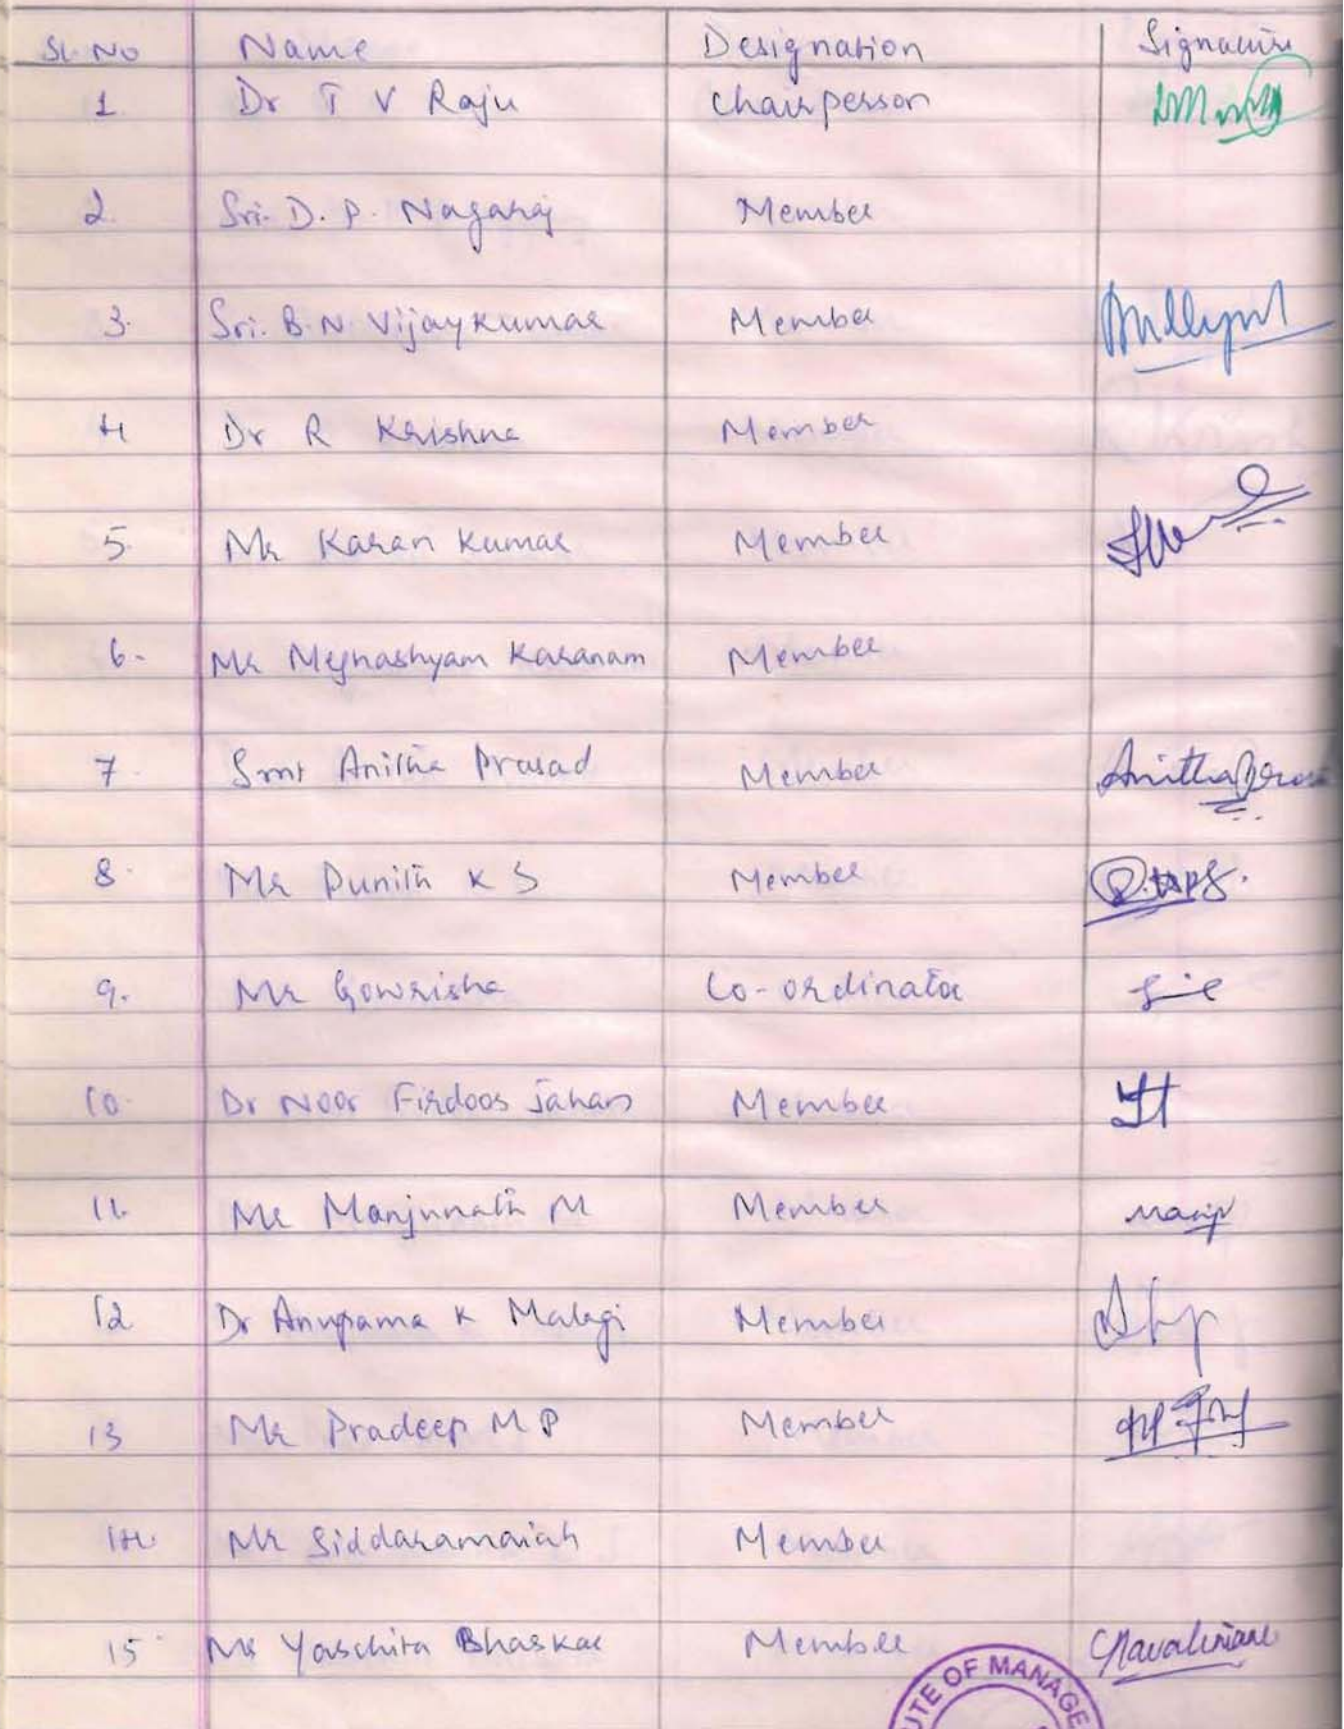 Sl. No Name Designation Signature
1 Dr T V Raju Chairperson
2. Sri. D. P. Nagaraj Member
3. Sri. B. N. Vijaykumar Member
4 Dr R Krishna Member
5. Mr Karan Kumar Member
6. Mr Meghashyam Karanam Member
7. Smt Anitha Prasad Member Anitha Prasa
8. Mr Punith K S Member
9. Mr Gowrisha Co-ordinator
10. Dr Noor Firdoos Jahan Member
11. Mr Manjunath M Member
12 Dr Anupama K Malagi Member
13 Mr Pradeep M P Member
14. Mr Siddaramaiah Member
15 Ms Yaschita Bhaskar Member
UTE OF MANAGE